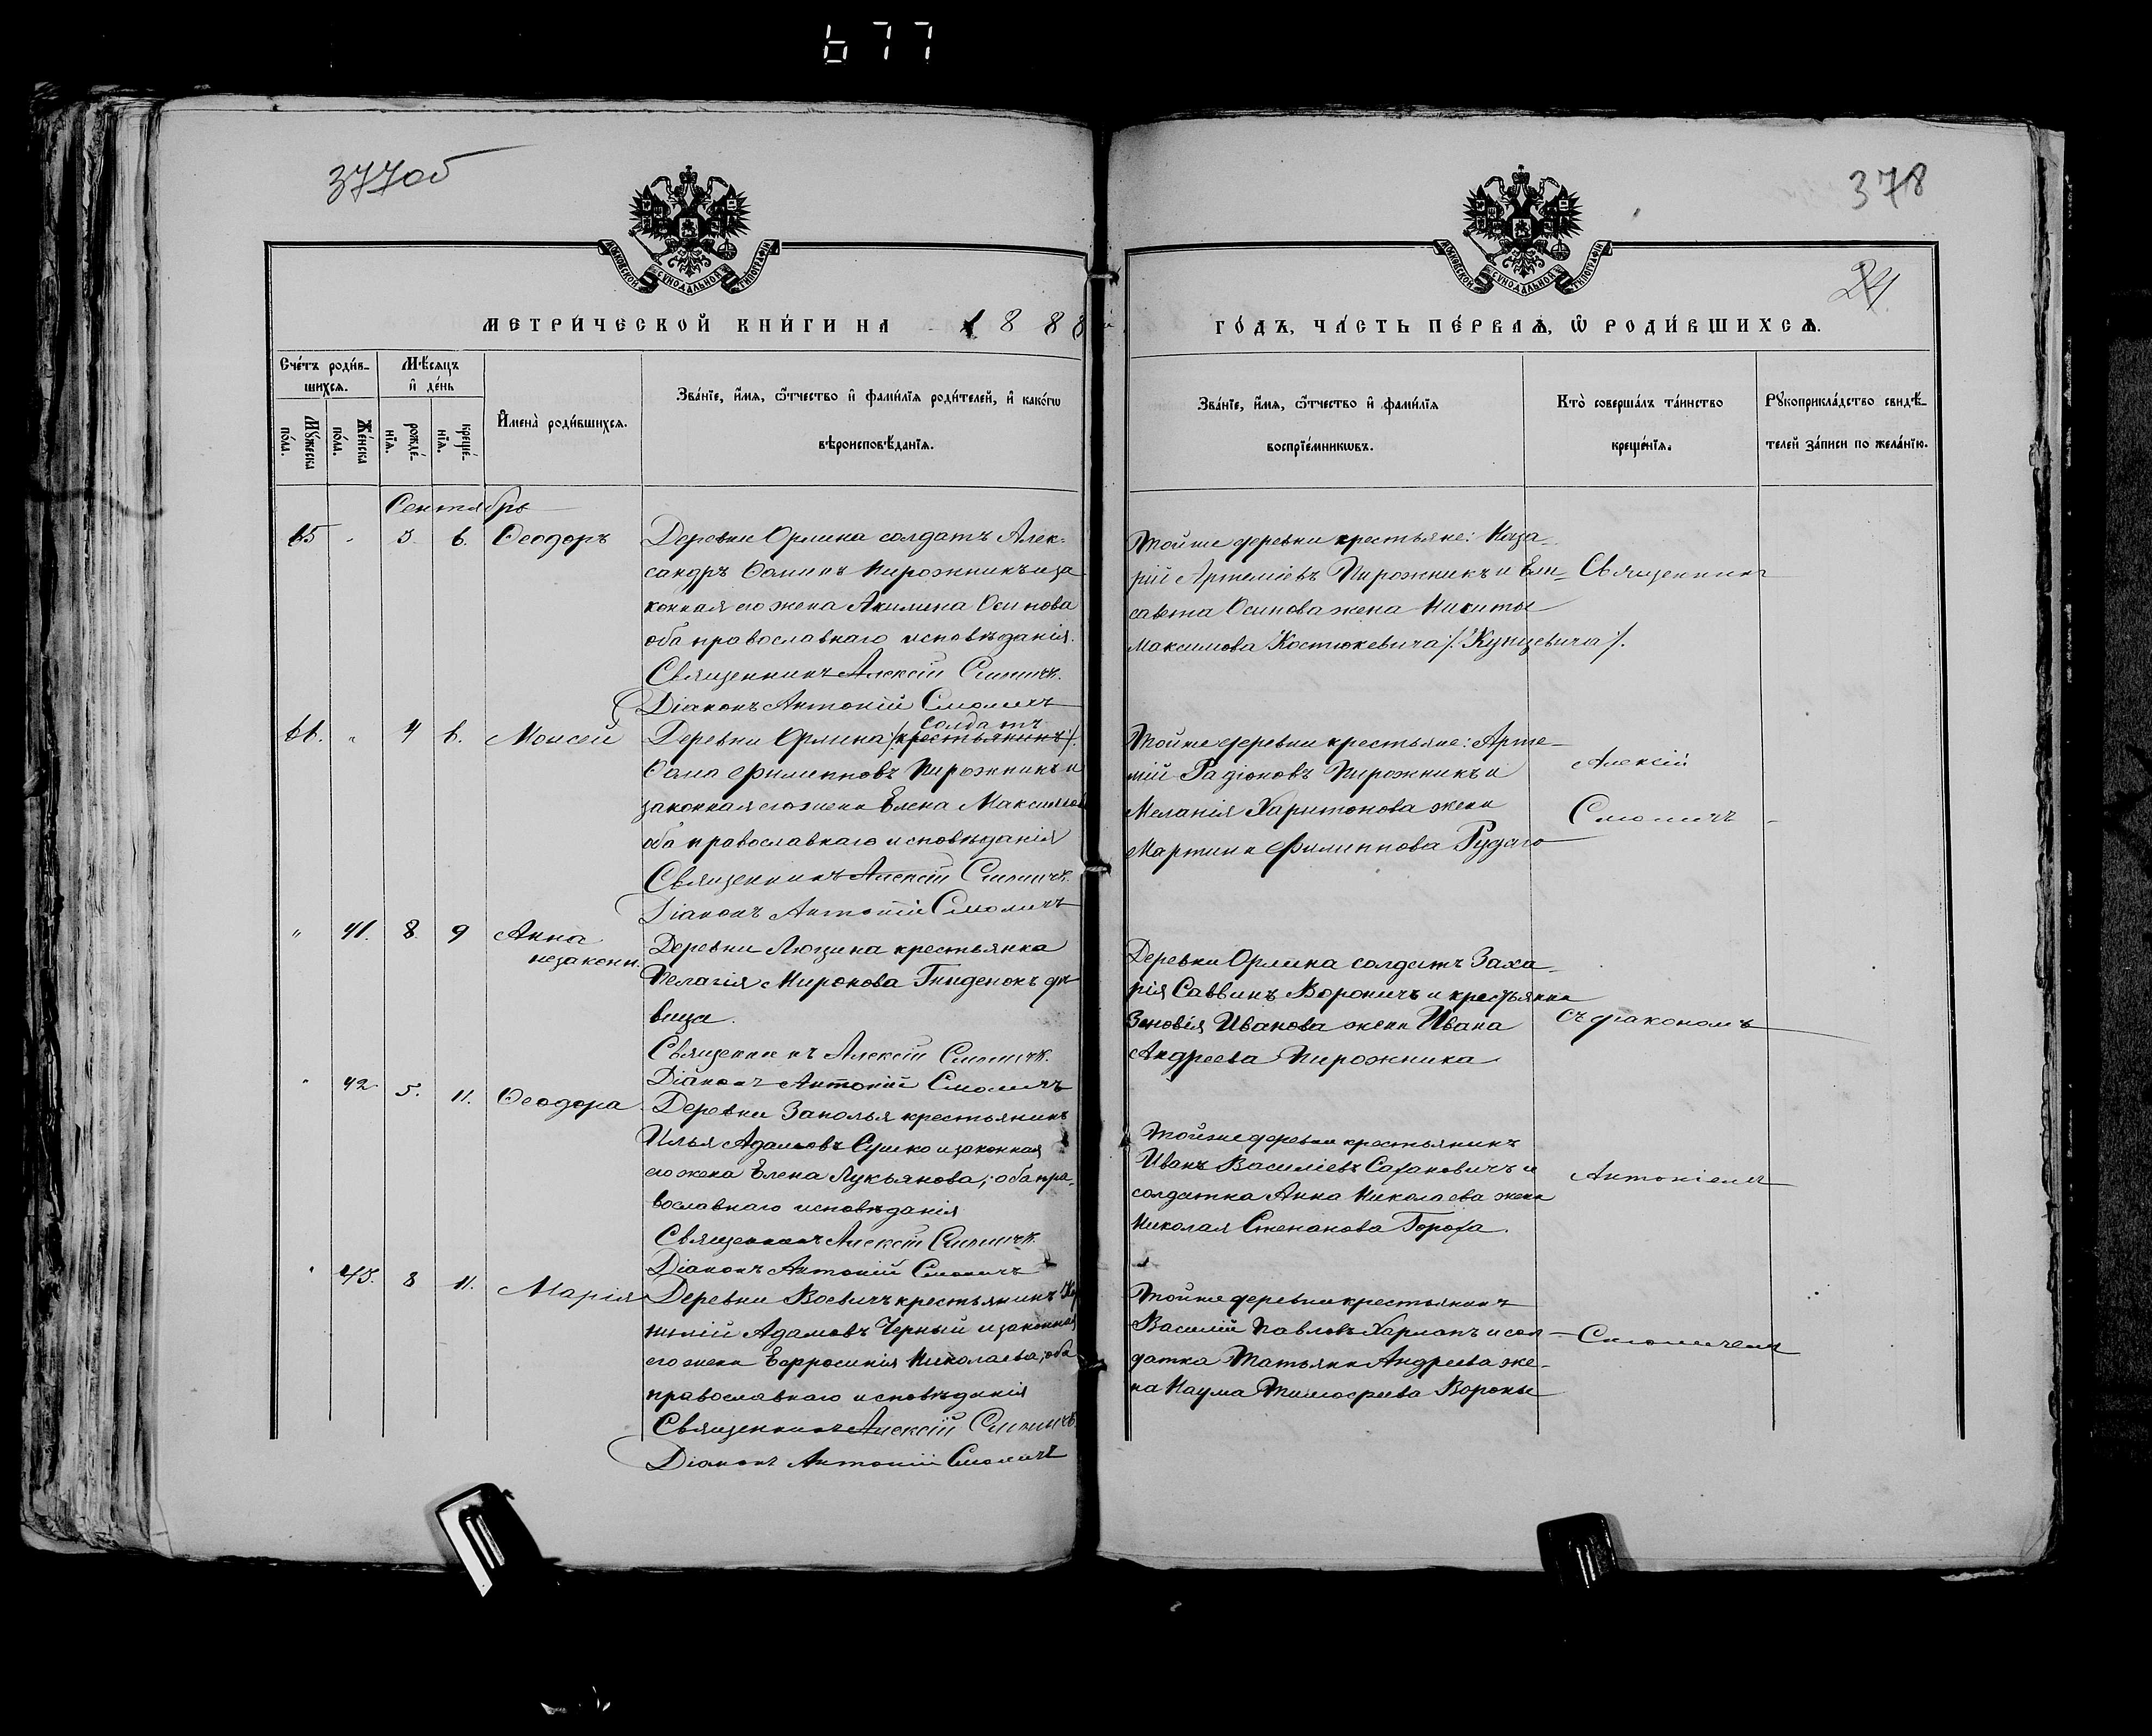 677
377об
378
МОСКОВСКОЙ СУНОДАЛЬНОЙ ТИПОГРАФІИ
МОСКОВСКОЙ СУНОДАЛЬНОЙ ТИПОГРАФІИ
24
МЕТРИ́ЧЕСКОЙ КНИ́ГИ НА 1888
ГО́ДЪ, ЧА́СТЬ ПЕ́РВАѦ, Ѽ РОДИ́ВШИХСѦ.
Сче́тъ роди́в-
шихсѧ.
Мѣ́сѧцъ
и҆ де́нь
Мꙋ́жеска
по́ла.
Же́нска
по́ла.
рожде́-
нїѧ.
креще́-
нїѧ.
И҆мена̀ роди́вшихсѧ.
Зва́нїе, и҆́мѧ, ѻ҆́тчество и҆ фами́лїѧ роди́телей, и҆ како́гѡ
вѣроисповѣ́данїѧ.
Зва́нїе, и҆́мѧ, ѻ҆́тчество и҆ фами́лїѧ
воспрїе́мникѡвъ.
Кто̀ соверша́лъ та́инство
креще́нїѧ.
Рꙋкоприкла́дство свидѣ́-
телей за́писи по жела́нїю.
Сентябрь
65 " 3 6. Ѳеодоръ
Деревни Орлина солдатъ Алек-
сандръ Ѳоминъ Пирожникъ и за
конная его жена Акилина Осипова
оба православнаго исповѣданія.
Священникъ Алексій Смоличъ.
Діаконъ Антоній Смоличъ
Тойже деревни крестьяне: Наза-
рій Артеміевъ Пирожникъ и Ели-
савета Осипова жена Никиты
Максимова Костюкевича /:Кунцевича:/.
Священникъ
66. " 4 6. Моисей
солдатъ
Деревни Орлина /:крестьянинъ:/.
Ѳома Филипповъ Пирожникъ и
законная его жена Елена Максимова
оба православнаго исповѣданія
Священникъ Алексій Смоличъ.
Діаконъ Антоній Смоличъ
Тойже деревни крестьяне: Арте-
мій Радіоновъ Пирожникъ и
Меланія Харитонова жена
Мартина Филиппова Рудаго
Алексій
Смоличъ
" 41. 8. 9 Анна
незаконн.
Деревни Лющина крестьянка
Пелагія Миронова Гниденокъ дѣ-
вица.
Священникъ Алексій Смоличъ.
Діаконъ Антоній Смоличъ
Деревни Орлина солдатъ Заха-
рія Саввинъ Вороничъ и крестьянка
Зеновія Иванова жена Ивана
Андреева Пирожника
съ діакономъ
" 42 5. 11. Ѳеодора
Деревни Заполья крестьянинъ
Илья Адамовъ Сушко и законная
его жена Елена Лукьянова; оба пра-
вославнаго исповѣданія
Священникъ Алексій Смоличъ.
Діаконъ Антоній Смоличъ
Тойже деревни крестьянинъ
Иванъ Василіевъ Саханович и
солдатка Анна Николаева жена
Николая Степанова Гороха.
Антоніемъ
" 43. 8 11. Марія
Деревни Воевичъ крестьянинъ
Адамовъ Черный и законная
его жена Евфросинія Николаева; оба
православнаго исповѣданія
Священникъ Алексій Смоличъ
Діаконъ Антоній Смоличъ
Тойже деревни крестьянинъ
Василій Павловъ Харланъ и сол-
датка Татьяна Андреева же-
на Наума Тимофеева Вороны
Смоличемъ